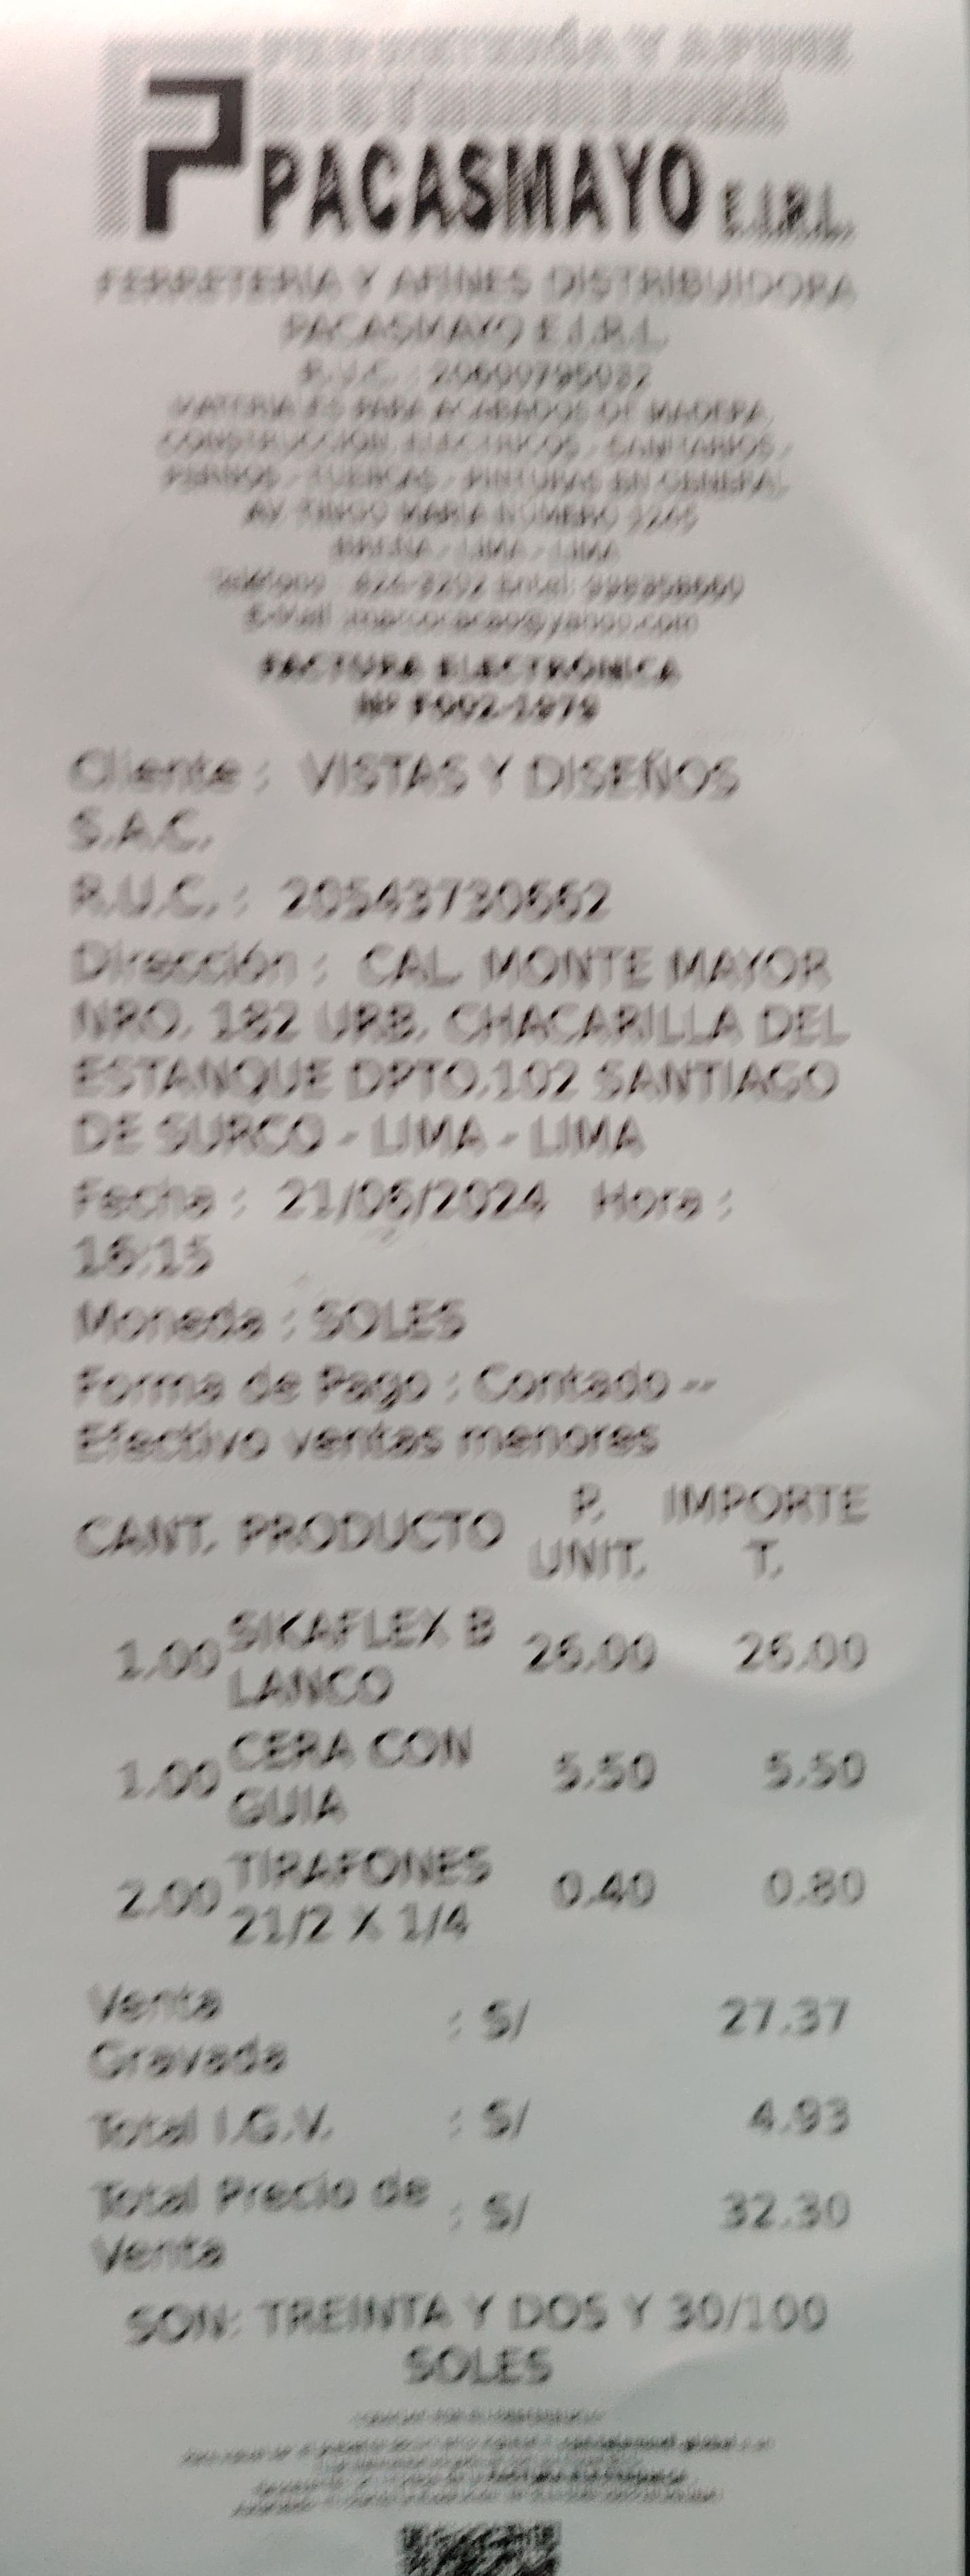 FERRETERÍA Y AFINES
DISTRIBUIDORA
PACASMAYO E.I.R.L.
FERRETERIA Y AFINES DISTRIBUIDORA
PACASMAYO E.I.R.L.
R.U.C. : 20600795032
MATERIALES PARA ACABADOS DE MADERA,
CONSTRUCCION, ELECTRICOS, SANITARIOS,
PERNOS - TUERCAS - PINTURAS EN GENERAL
AV. TINGO MARIA NÚMERO 1265
BREÑA - LIMA - LIMA
Teléfono : Entel:
E-Mail
FACTURA ELECTRÓNICA
Nº F002-1979
Cliente : VISTAS Y DISEÑOS
S.A.C.
R.U.C. : 20543730662
Dirección : CAL. MONTE MAYOR
NRO. 182 URB. CHACARILLA DEL
ESTANQUE DPTO.102 SANTIAGO
DE SURCO - LIMA - LIMA
Fecha : 21/06/2024 Hora :
16:15
Moneda : SOLES
Forma de Pago : Contado --
Efectivo ventas menores
CANT. PRODUCTO P. UNIT. IMPORTE T.
1.00 SIKAFLEX B 26.00 26.00
LANCO
1.00 CERA CON 5.50 5.50
GUIA
2.00 TIRAFONES 0.40 0.80
21/2 X 1/4
Venta
Gravada : S/ 27.37
Total I.G.V. : S/ 4.93
Total Precio de
Venta : S/ 32.30
SON: TREINTA Y DOS Y 30/100
SOLES